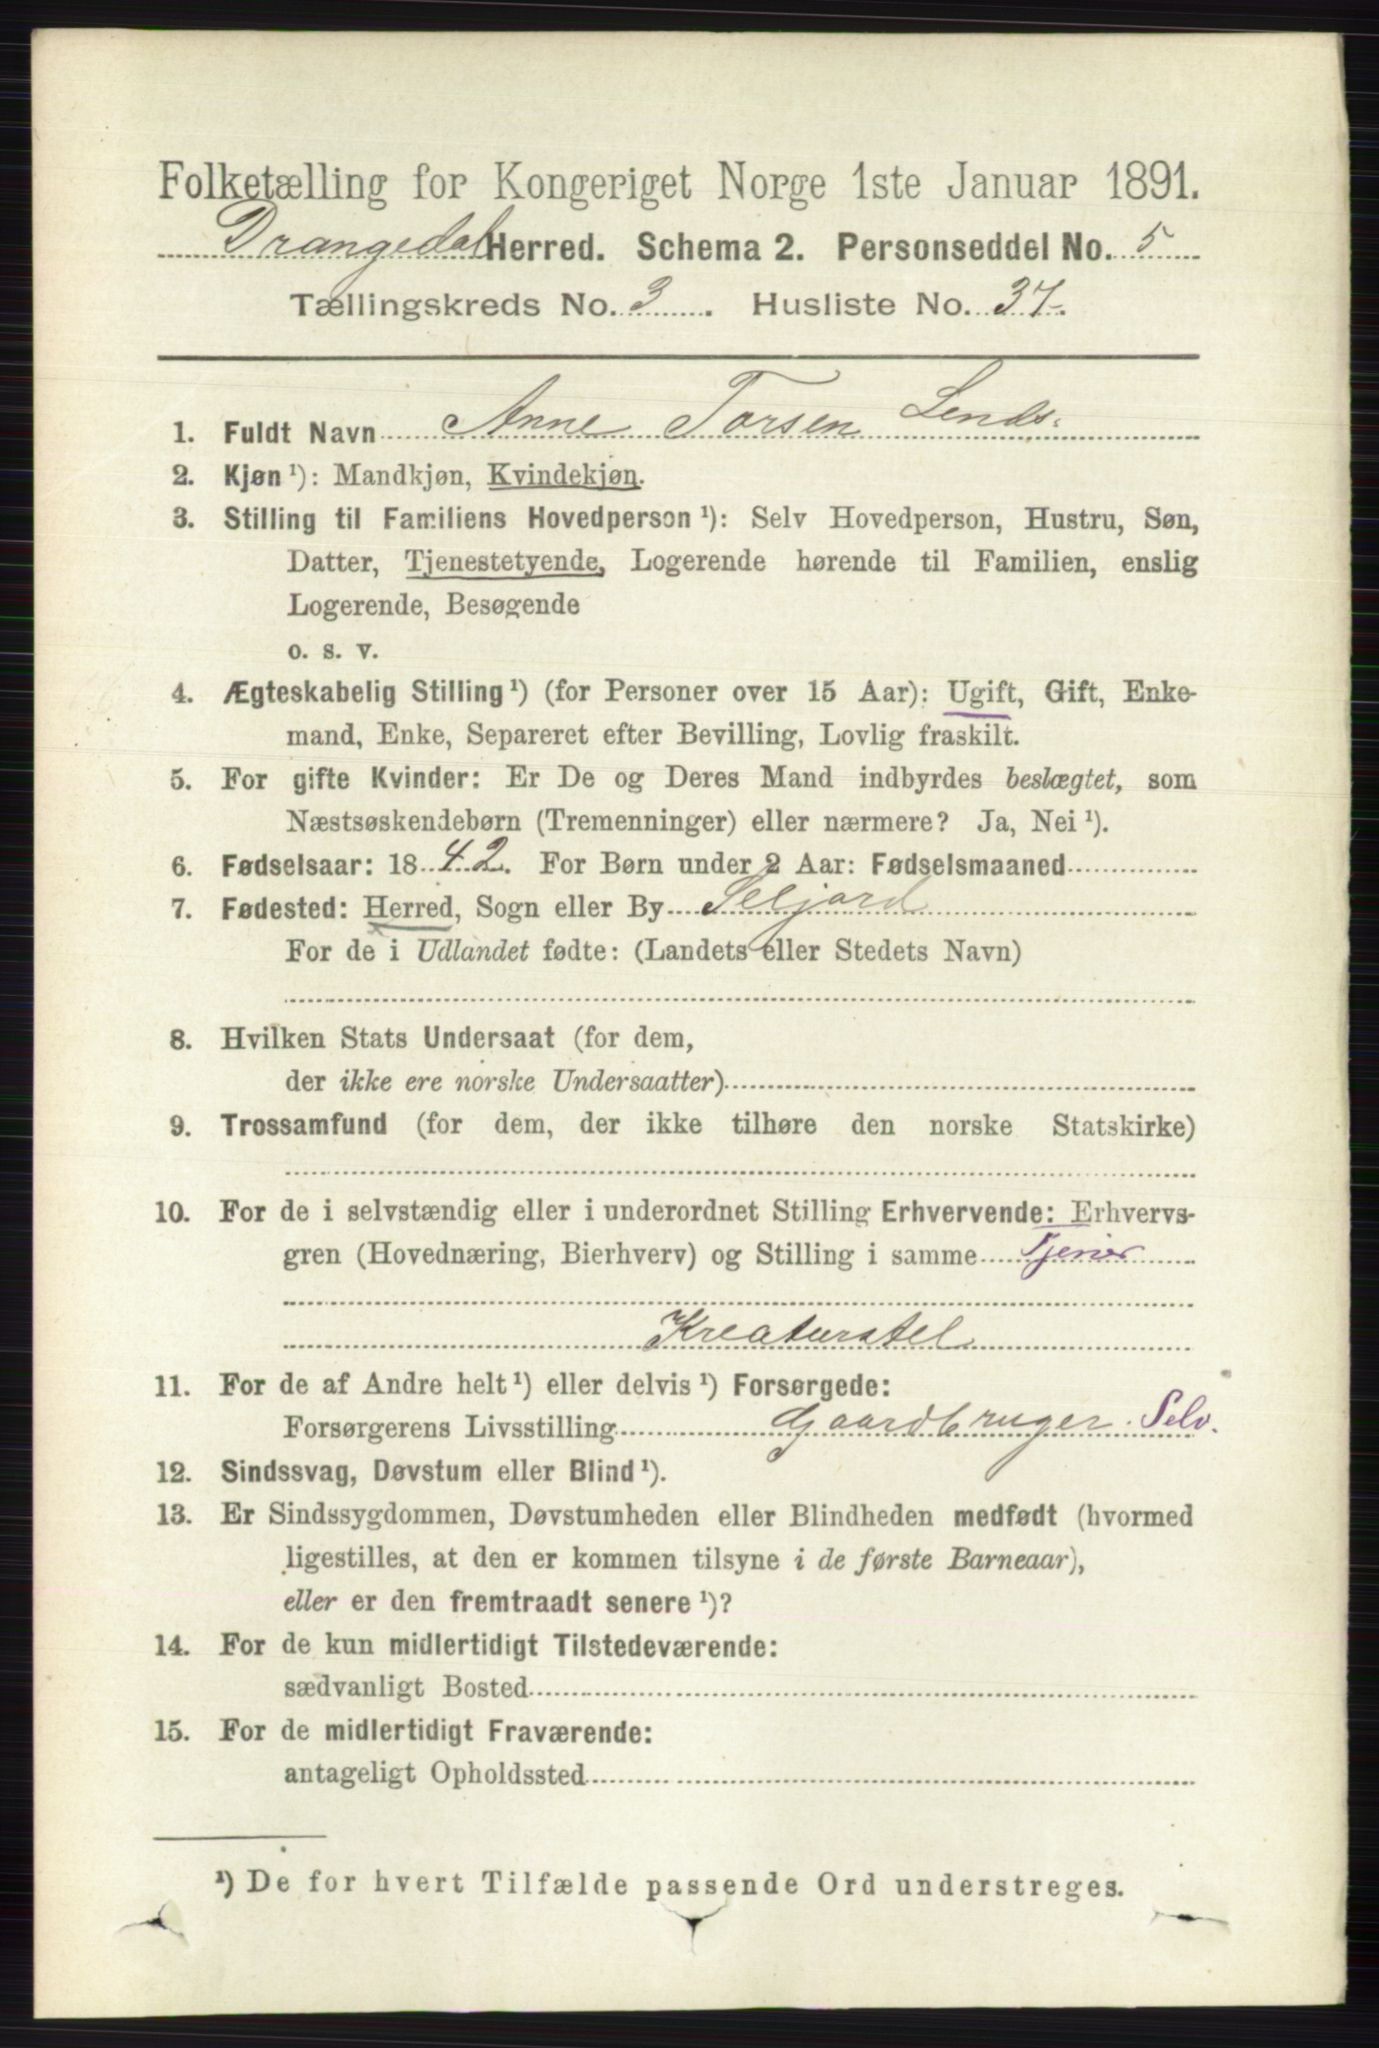 Folketælling for Kongeriget Norge 1ste Januar 1891.
Drangedal Herred. Schema 2. Personseddel No. 5
Tællingskreds No. 3. Husliste No. 37.
1. Fuldt Navn Anne Torsen Lends.
2. Kjøn ¹): Mandkjøn, Kvindekjøn.
3. Stilling til Familiens Hovedperson ¹): Selv Hovedperson, Hustru, Søn,
Datter, Tjenestetyende, Logerende hørende til Familien, enslig
Logerende, Besøgende
o. s. v.
4. Ægteskabelig Stilling ¹) (for Personer over 15 Aar): Ugift, Gift, Enke-
mand, Enke, Separeret efter Bevilling, Lovlig fraskilt.
5. For gifte Kvinder: Er De og Deres Mand indbyrdes beslægtet, som
Næstsøskendebørn (Tremenninger) eller nærmere? Ja, Nei ¹).
6. Fødselsaar: 1842. For Børn under 2 Aar: Fødselsmaaned
7. Fødested: Herred, Sogn eller By Seljord
For de i Udlandet fødte: (Landets eller Stedets Navn)
8. Hvilken Stats Undersaat (for dem,
der ikke ere norske Undersaatter)
9. Trossamfund (for dem, der ikke tilhøre den norske Statskirke)
10. For de i selvstændig eller i underordnet Stilling Erhvervende: Erhvervs-
gren (Hovednæring, Bierhverv) og Stilling i samme Tjener
Kreaturstel
11. For de af Andre helt ¹) eller delvis ¹) Forsørgede:
Forsørgerens Livsstilling Gaardbruger. Selv.
12. Sindssvag, Døvstum eller Blind ¹).
13. Er Sindssygdommen, Døvstumheden eller Blindheden medfødt (hvormed
ligestilles, at den er kommen tilsyne i de første Barneaar),
eller er den fremtraadt senere ¹)?
14. For de kun midlertidigt Tilstedeværende:
sædvanligt Bosted
15. For de midlertidigt Fraværende:
antageligt Opholdssted
¹) De for hvert Tilfælde passende Ord understreges.